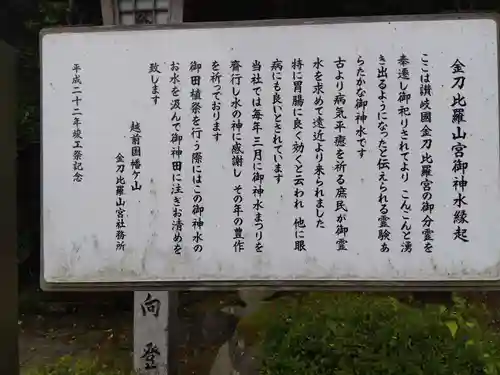 金刀比羅山宮御神水縁起
ここは讃岐國金刀比羅宮の御分霊を
奉遷し御祀りされてより こんこんと湧
き出るようになったと伝えられる霊験あ
らたかな御神水です
古より病気平癒を祈る庶民が御霊
水を求めて遠近より来られました
特に胃腸に良く効くと云われ 他に眼
病にも良いとされています
当社では毎年三月に御神水まつりを
斉行し水の神に感謝し その年の豊作
を祈っております
御田植祭を行う際にはこの御神水の
お水を汲んで御神田に注ぎお清めを
致します
越前国幡ケ山
金刀比羅山宮社務所
平成二十二年竣工祭記念
向
登